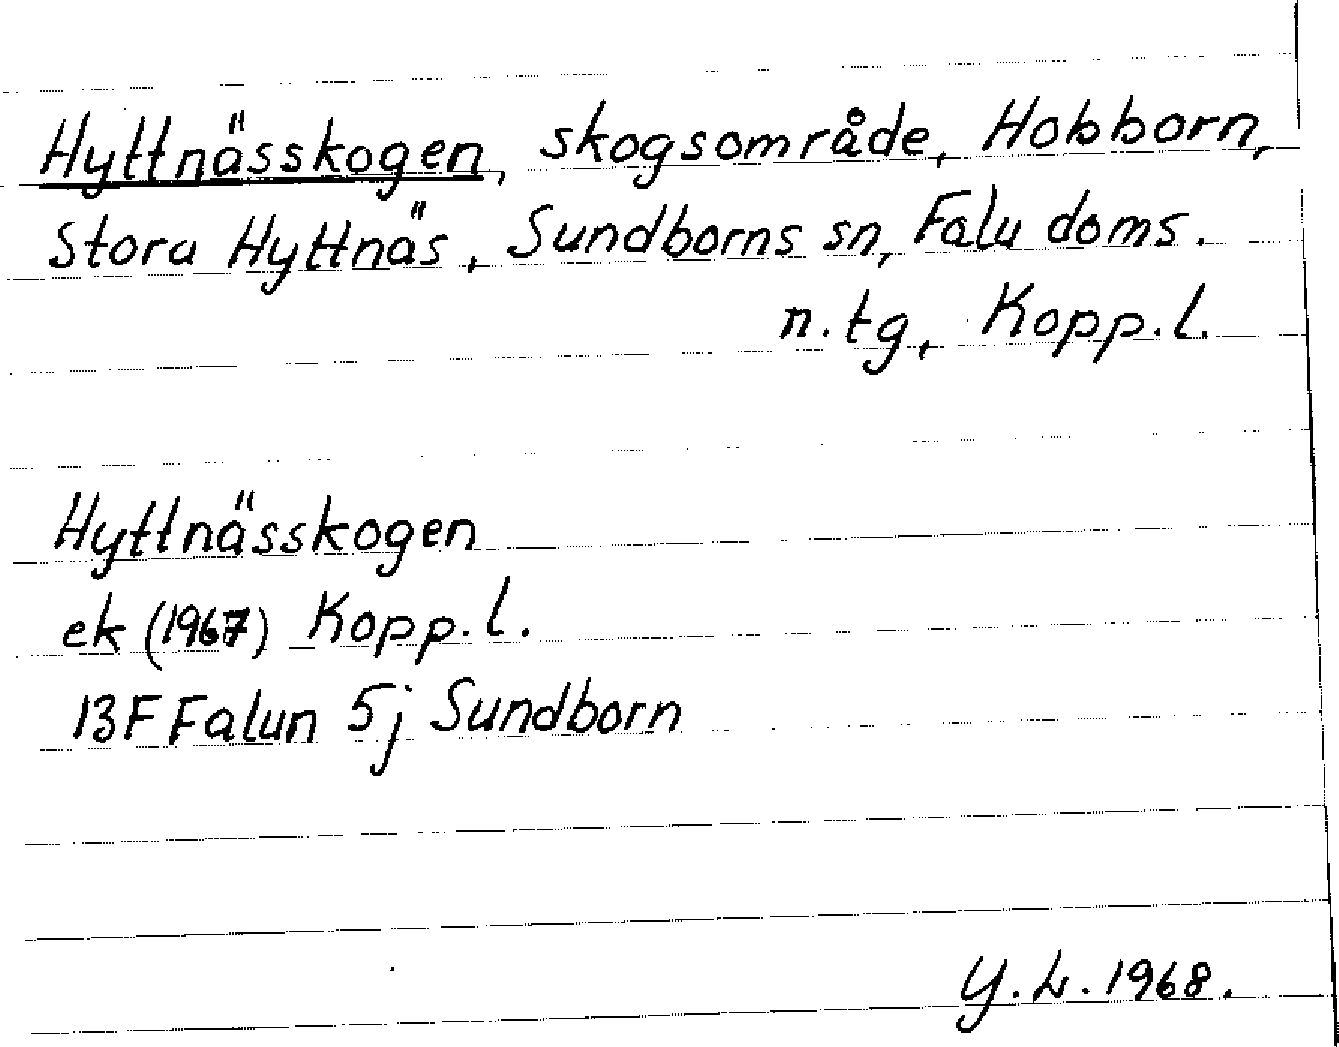 Hyttnässkogen, skogsområde, Hobborn,
Stora Hyttnäs, Sundborns sn, Falu doms.
n. tg, Kopp. l.
Hyttnässkogen
ek (1967) Kopp. l.
13F Falun 5j Sundborn
Y. L. 1968.